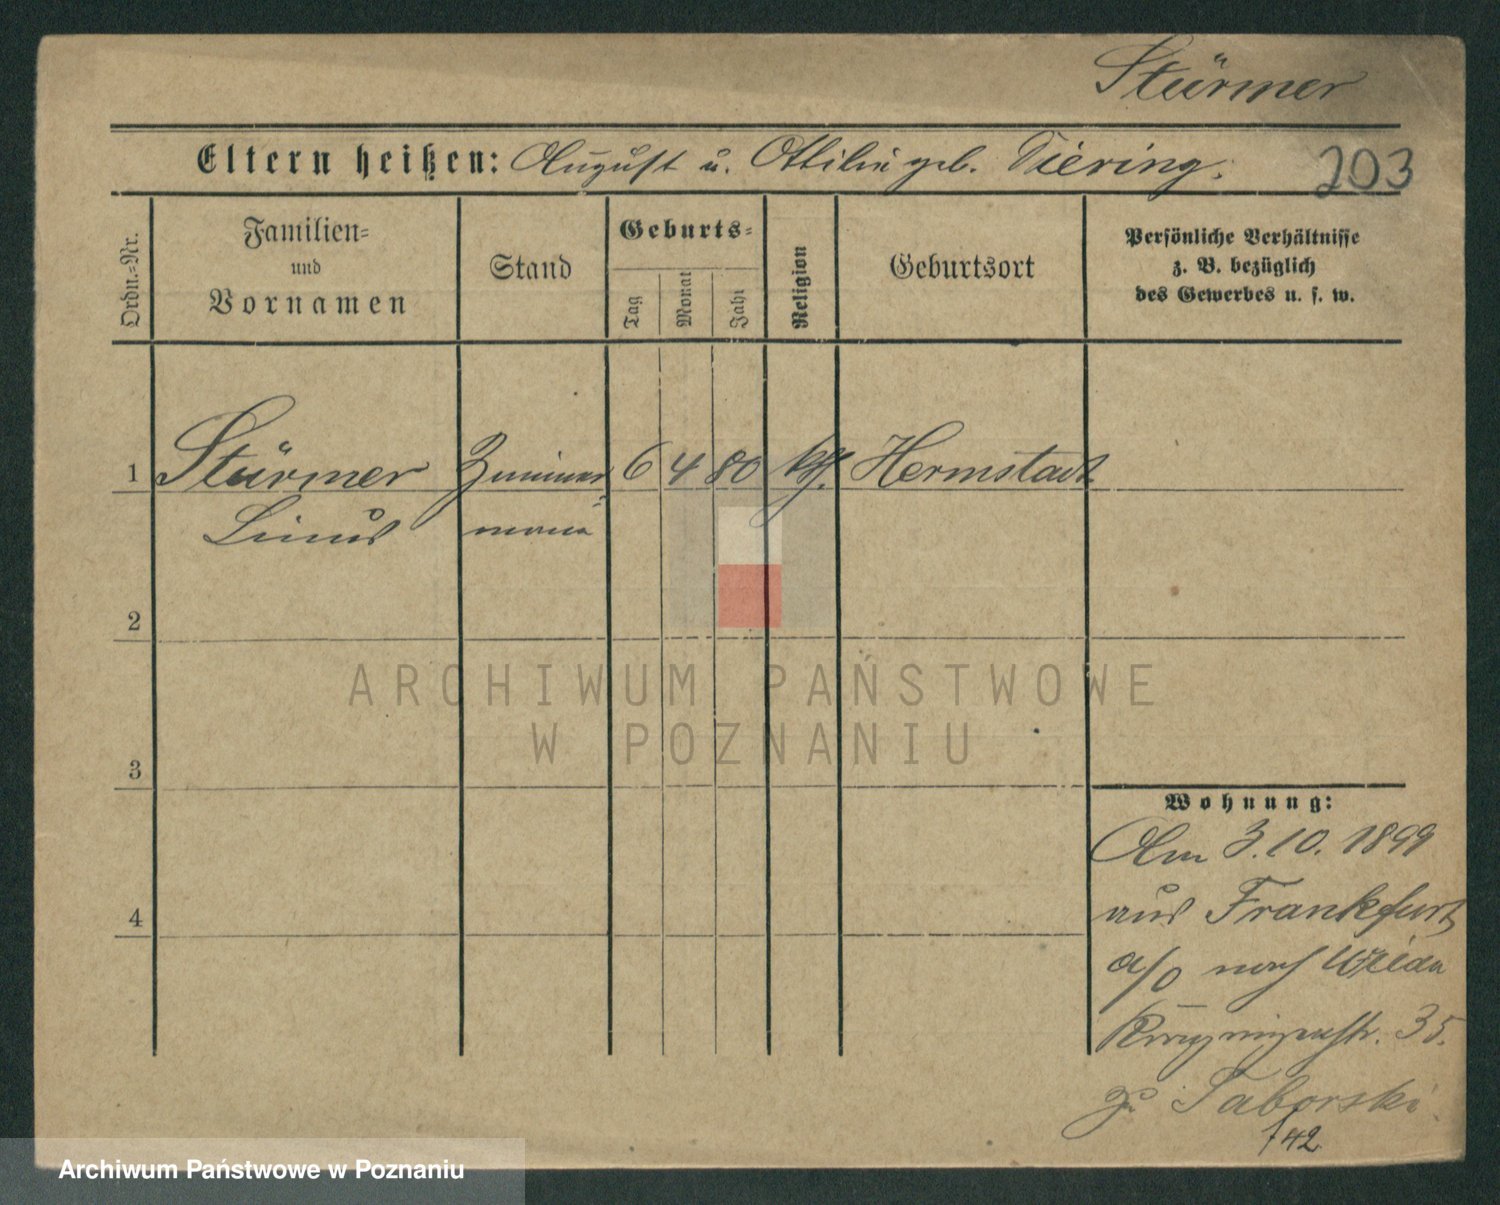 Stürmer
Eltern heißen: August u. Ottilie geb. Diering.
203
Ordn.-Nr.
Familien-
und
Vornamen
Stand
Geburts-
Tag
Monat
Jahr
Religion
Geburtsort
Persönliche Verhältnisse
z. B. bezüglich
des Gewerbes u. s. w.
1 Stürmer Zimmer- 6 4 80 kath. Hermstadt
Linus mann
2
ARCHIWUM PAŃSTWOWE
W POZNANIU
3
Wohnung:
Am 3.10.1899
4
aus Frankfurt
a/o nach Wilda
35.
zu Taborski
142
Archiwum Państwowe w Poznaniu